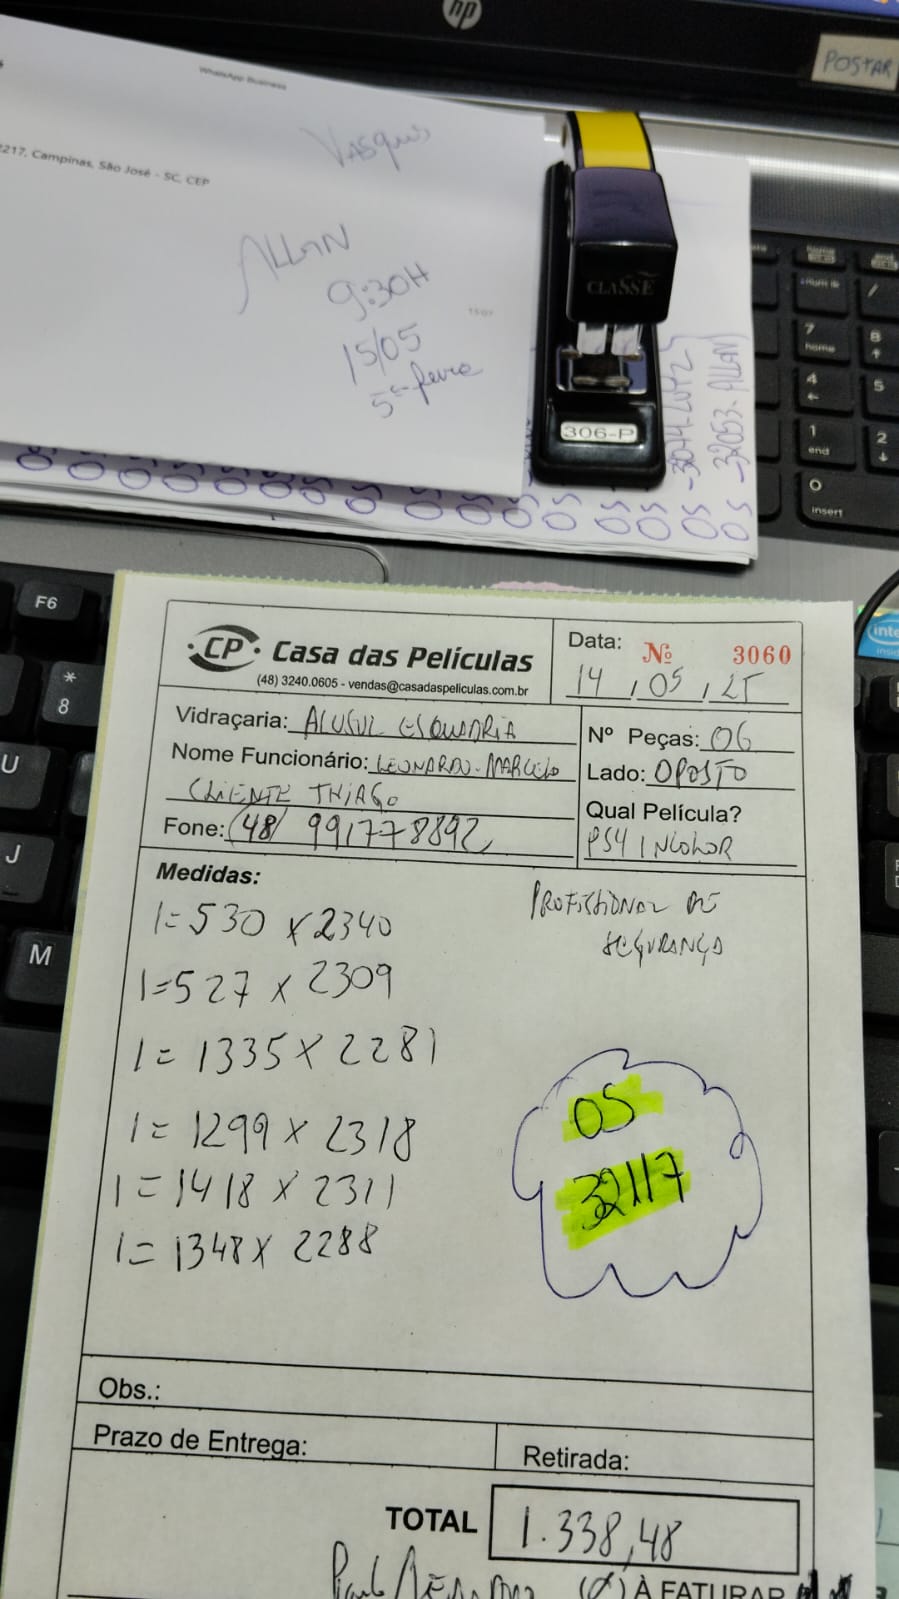 hp
POSTAR
WhatsApp Business
2217, Campinas, São José - SC, CEP
VASQUES
ALLAN
9:30H
15/05
5ª feira
15:07
CLASSE
306-P
OS -32053- ALLAN
7 home
8
4
5
1 end
2
0 insert
F6
* 8
U
J
M
inte
CP Casa das Películas
(48) 3240.0605 - vendas@casadaspeliculas.com.br
Data: Nº 3060
14 / 05 / 25
Vidraçaria: ALUSUL ESQUADRIA
Nome Funcionário: LEONARDO - MARCELO
CLIENTE THIAGO
Fone: (48) 991778892
Nº Peças: 06
Lado: OPOSTO
Qual Película?
PS4 INCOLOR
Medidas:
PROFISSIONAL DE
SEGURANÇA
1=530 x 2340
1=527 x 2309
1= 1335 x 2281
1= 1299 x 2318
1= 1418 x 2311
1= 1348 x 2288
OS
32117
Obs.:
Prazo de Entrega:
Retirada:
TOTAL 1.338,48
À FATURAR